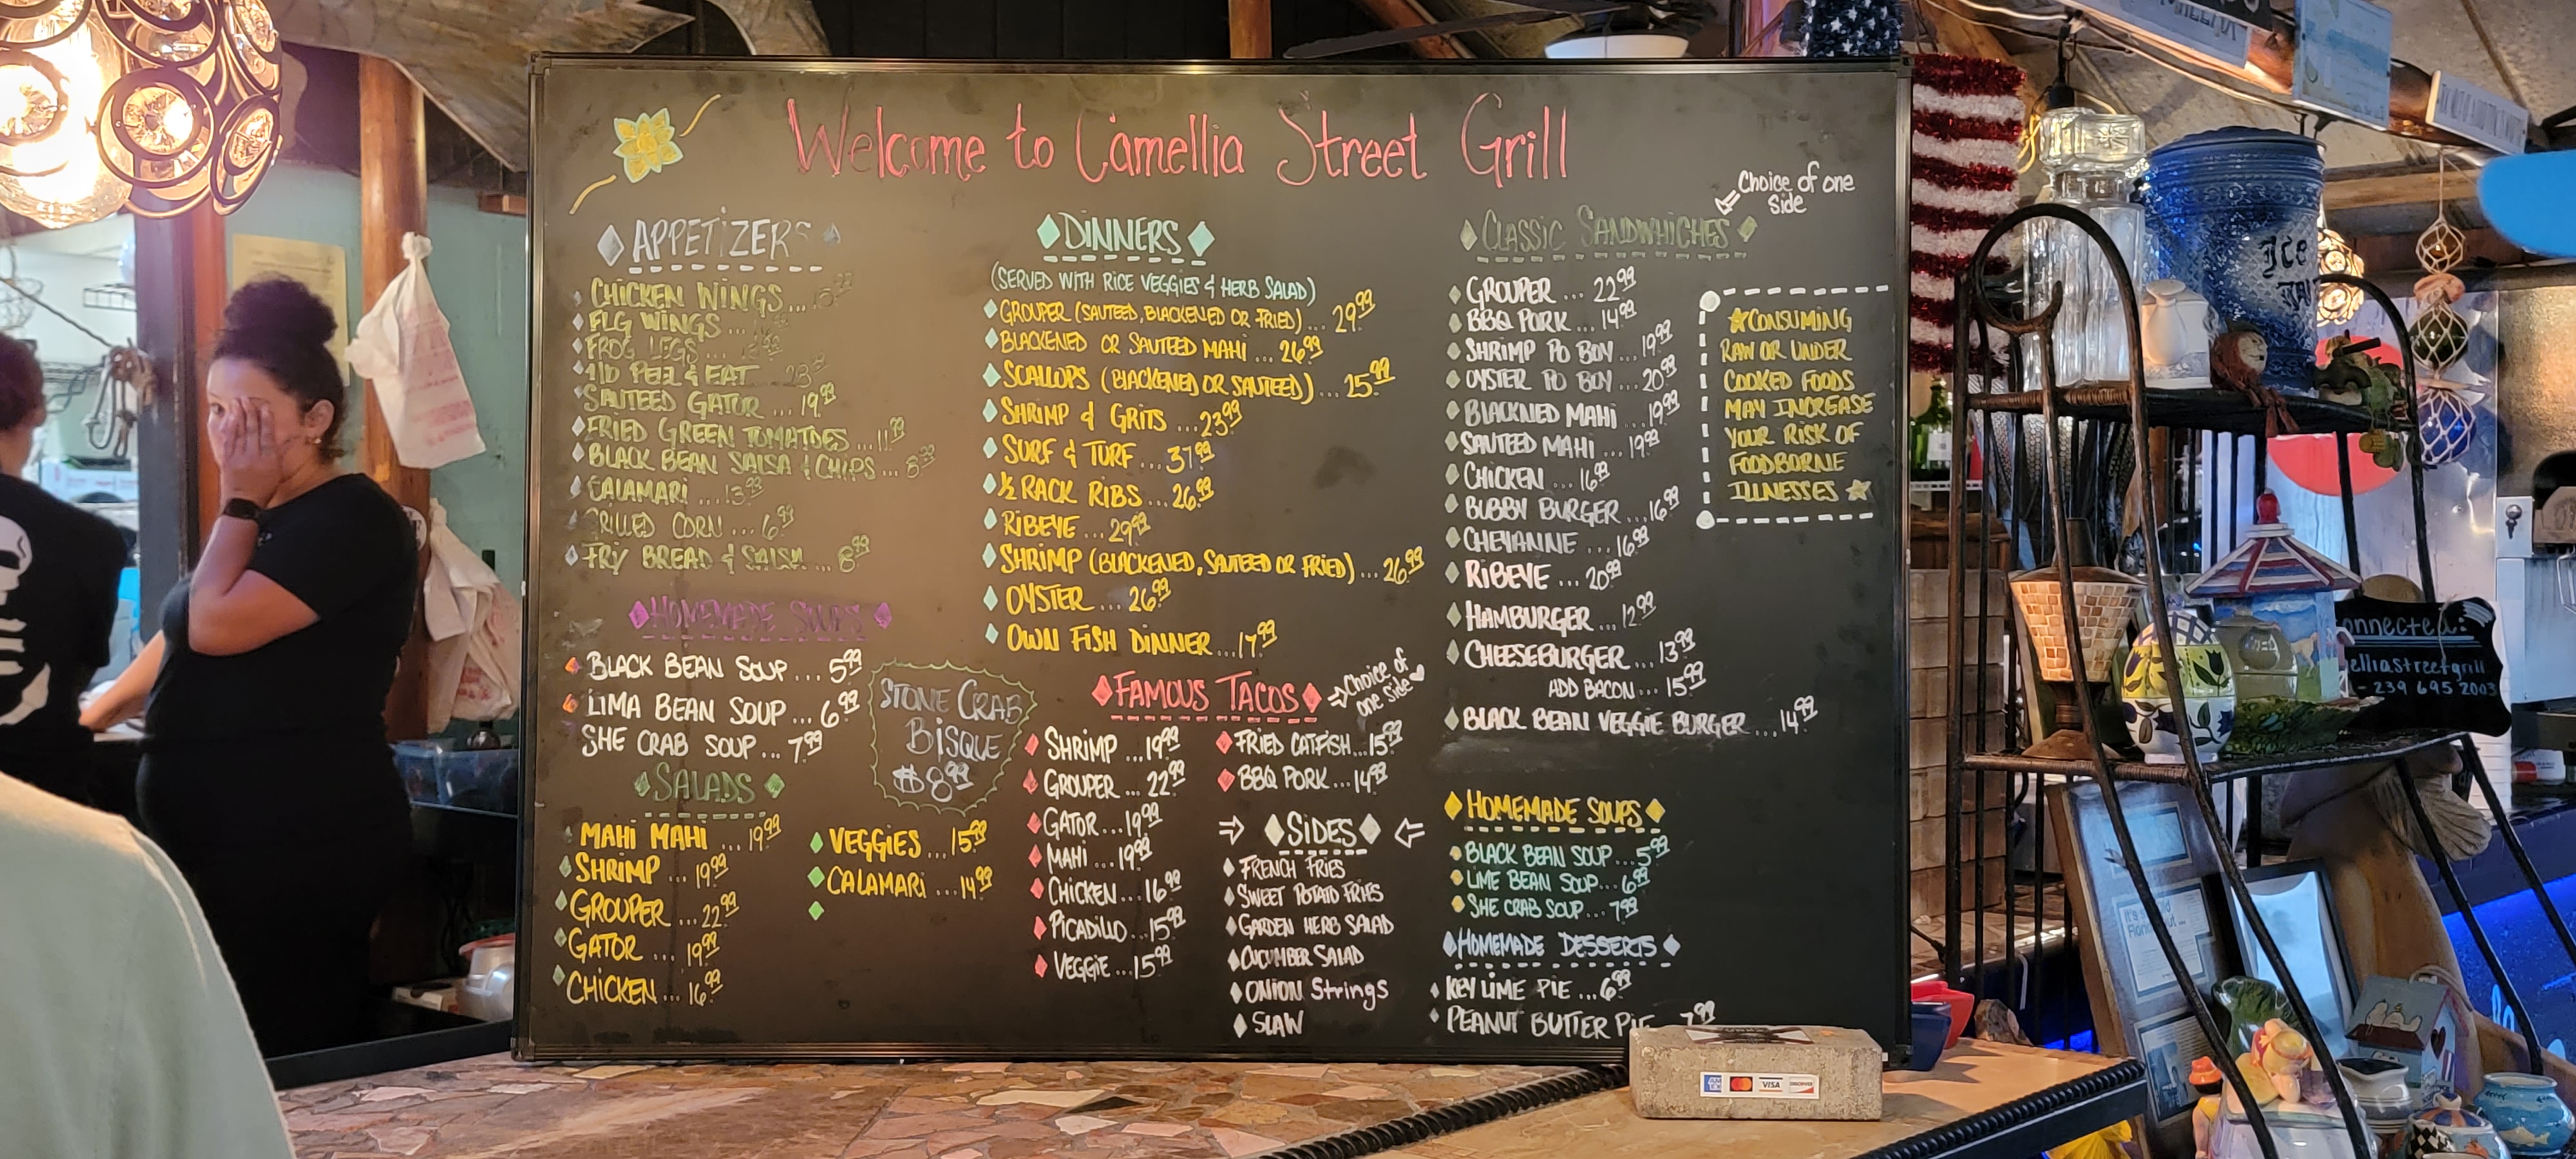 Welcome to Camellia Street Grill
Choice of one
side
APPETIZERS
CHICKEN WINGS
FLG WINGS ...
FROG LEGS ...
PEEL & EAT
SAUTEED GATOR ... 19.99
FRIED GREEN TOMATOES ... 11.99
BLACK BEAN SALSA & CHIPS ... 8.99
CALAMARI ... 13.99
GRILLED CORN ... 6.99
FRY BREAD & SALSA ... 8.99
HOMEMADE SOUPS
BLACK BEAN SOUP ... 5.99
LIMA BEAN SOUP ... 6.99
SHE CRAB SOUP ... 7.99
STONE CRAB
BISQUE
$8.99
SALADS
MAHI MAHI ... 19.99
SHRIMP ... 19.99
GROUPER ... 22.99
GATOR ... 19.99
CHICKEN ... 16.99
VEGGIES ... 15.99
CALAMARI ... 14.99
DINNERS
(SERVED WITH RICE VEGGIES & HERB SALAD)
GROUPER (SAUTEED, BLACKENED OR FRIED) ... 29.99
BLACKENED OR SAUTEED MAHI ... 26.99
SCALLOPS (BLACKENED OR SAUTEED) ... 25.99
SHRIMP & GRITS ... 23.99
SURF & TURF ... 37.99
½ RACK RIBS ... 26.99
RIBEYE ... 29.99
SHRIMP (BLACKENED, SAUTEED OR FRIED) ... 26.99
OYSTER ... 26.99
OWN FISH DINNER ... 17.99
FAMOUS TACOS
Choice of
one side
SHRIMP ... 19.99
GROUPER ... 22.99
GATOR ... 19.99
MAHI ... 19.99
CHICKEN ... 16.99
PICADILLO ... 15.99
VEGGIE ... 15.99
FRIED CATFISH ... 15.99
BBQ PORK ... 14.99
SIDES
FRENCH FRIES
SWEET POTATO FRIES
GARDEN HERB SALAD
CUCUMBER SALAD
ONION Strings
SLAW
CLASSIC SANDWHICHES
GROUPER ... 22.99
BBQ PORK ... 14.99
SHRIMP PO BOY ... 19.99
OYSTER PO BOY ... 20.99
BLACKNED MAHI ... 19.99
SAUTEED MAHI ... 19.99
CHICKEN ... 16.99
BUBBY BURGER ... 16.99
CHEYANNE ... 16.99
RIBEYE ... 20.99
HAMBURGER ... 12.99
CHEESEBURGER ... 13.99
ADD BACON ... 15.99
BLACK BEAN VEGGIE BURGER ... 14.99
CONSUMING
RAW OR UNDER
COOKED FOODS
MAY INCREASE
YOUR RISK OF
FOODBORNE
ILLNESSES
HOMEMADE SOUPS
BLACK BEAN SOUP ... 5.99
LIME BEAN SOUP ... 6.99
SHE CRAB SOUP ... 7.99
HOMEMADE DESSERTS
KEY LIME PIE ... 6.99
PEANUT BUTTER PIE 7.99
VISA
DISCOVER
Ice
onnected:
elliastreetgrill
- 239 695 2003